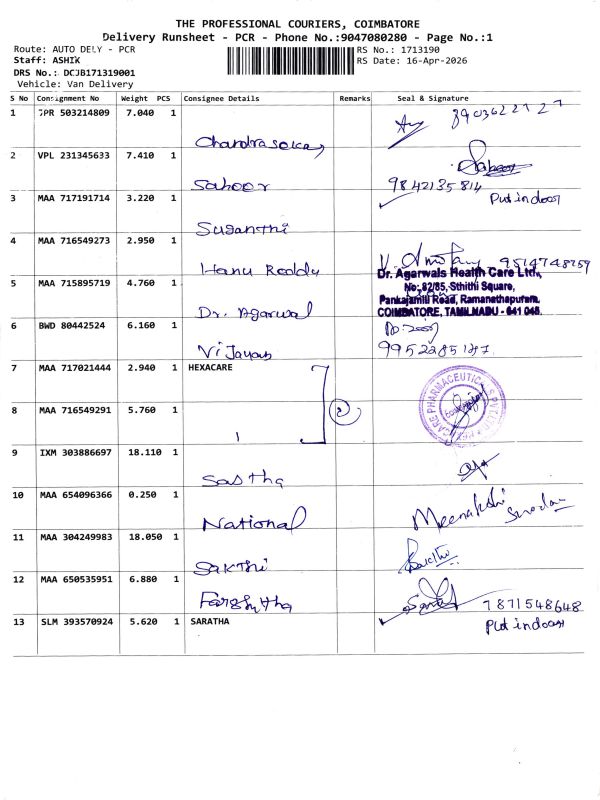 THE PROFESSIONAL COURIERS, COIMBATORE
Delivery Runsheet - PCR - Phone No.:9047080280 - Page No.:1
Route: AUTO DELY - PCR RS No.: 1713190
Staff: ASHIK RS Date: 16-Apr-2026
DRS No.: DCJB171319001
Vehicle: Van Delivery
S No Consignment No Weight PCS Consignee Details Remarks Seal & Signature
1 JPR 503214809 7.040 1
Chandrasekar
2 VPL 231345633 7.410 1
Sahoor 9842135814
3 MAA 717191714 3.220 1 Put indoor
Suganthi
4 MAA 716549273 2.950 1
Hanu Reddy 9514748259
5 MAA 715895719 4.760 1 Dr. Agarwals Health Care Ltd.,
No: 82/85, Sthithi Square,
Pankajamill Road, Ramanathapuram.
Dr. Agarwal COIMBATORE, TAMILNADU - 641 045.
6 BWD 80442524 6.160 1
Vijayan
7 MAA 717021444 2.940 1 HEXACARE
8 MAA 716549291 5.760 1
2
9 IXM 303886697 18.110 1
Sastha
10 MAA 654096366 0.250 1
National Meenakshi
11 MAA 304249983 18.050 1
Sakthi Sakthi
12 MAA 650535951 6.880 1
7871548648
13 SLM 393570924 5.620 1 SARATHA Put indoor